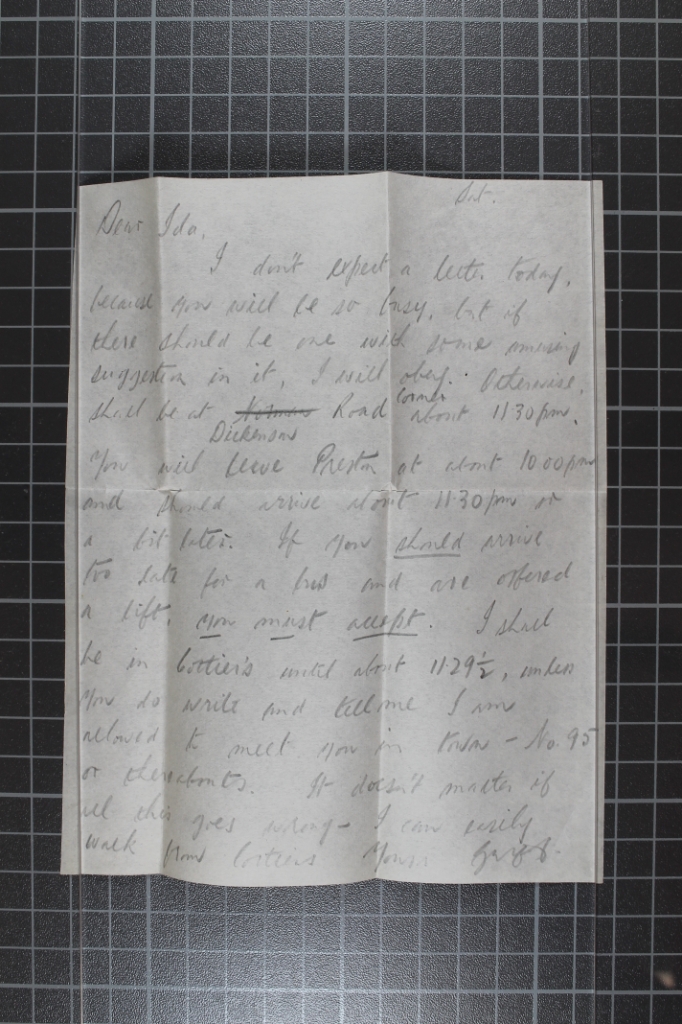 Sat.
Dear Ida,
I don't expect a letter today,
because you will be so busy, but if
there should be one with some amusing
suggestion in it, I will obey. Otherwise,
shall be at Norman Road corner about 11.30 pm.
Dickenson
You will leave Preston at about 10.00 pm
and should arrive about 11.30 pm or
a bit later. If you should arrive
too late for a bus and are offered
a lift, you must accept. I shall
be in until about 11.29½, unless
you do write and tell me I am
allowed to meet you in town - No. 95
or thereabouts. It doesn't matter if
all this goes wrong - I can easily
walk from Yours